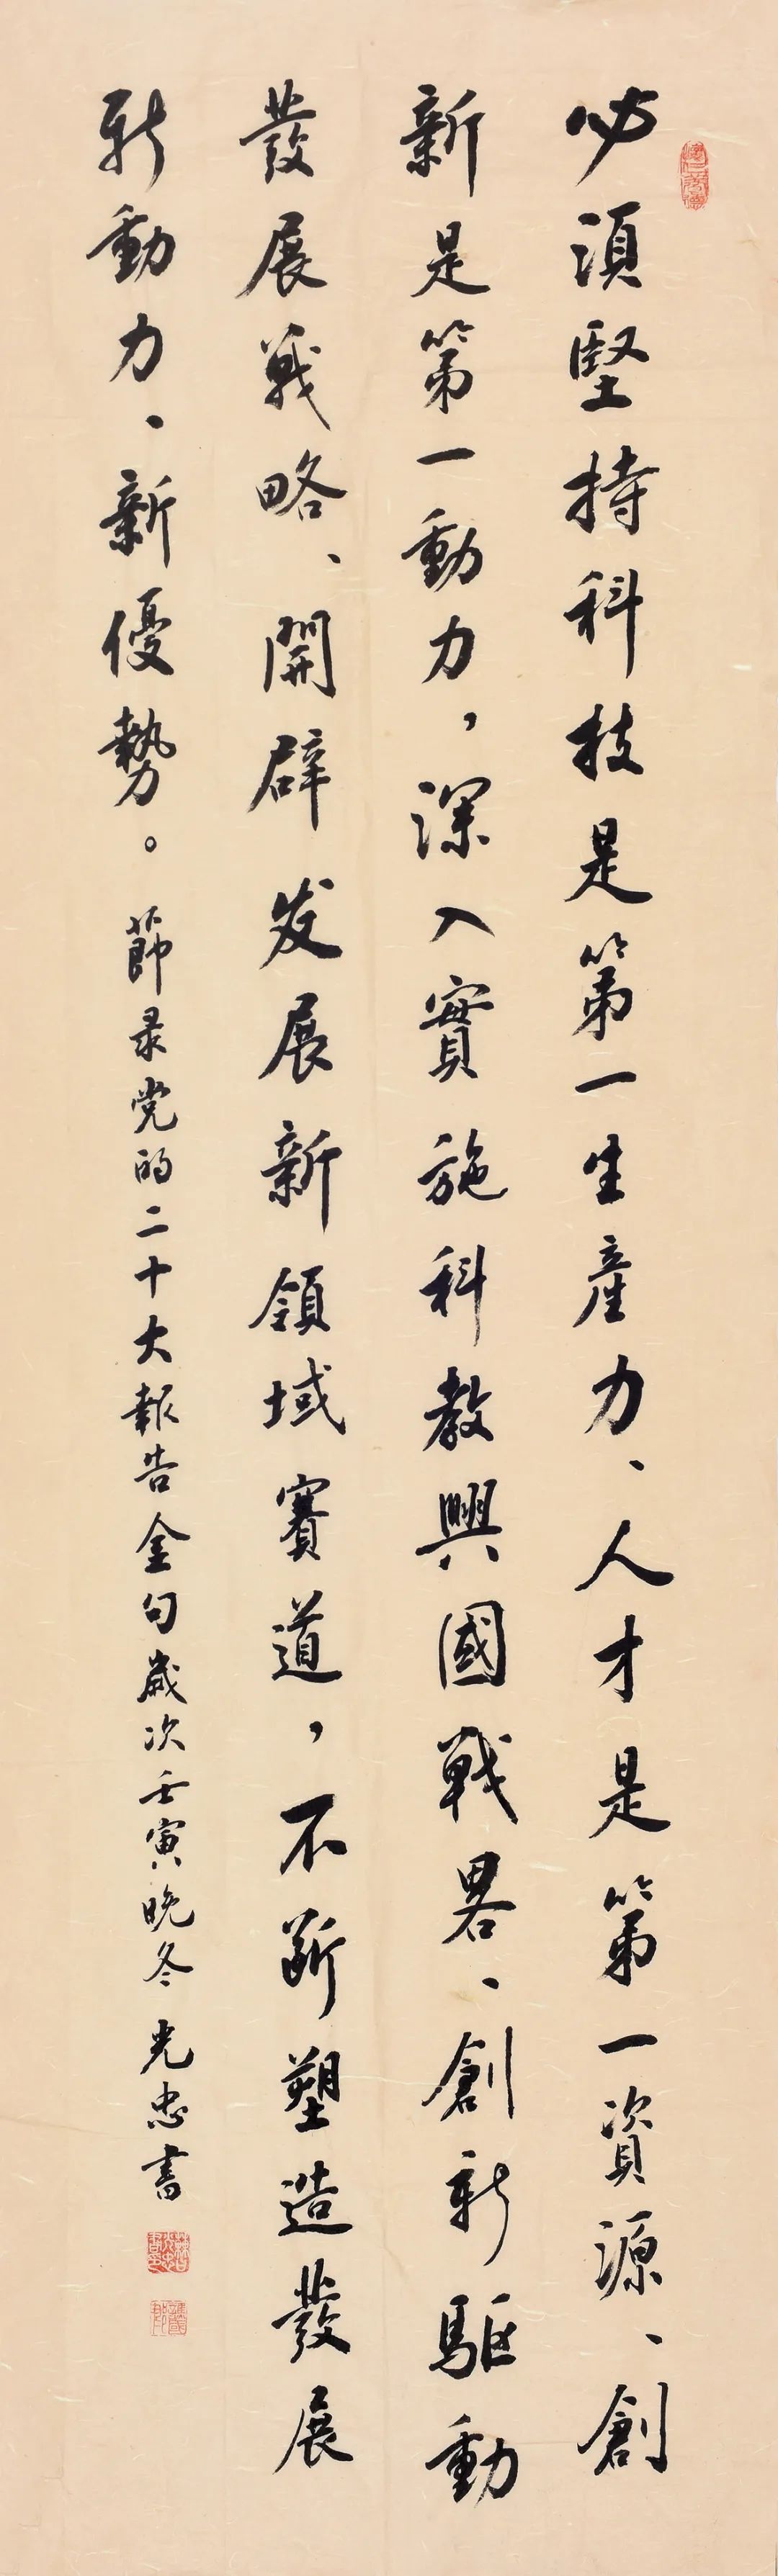 必須堅持科技是第一生産力、人才是第一資源、創
新是第一動力，深入實施科教興國戰畧、創新駆動
發展戰略、開辟发展新領域賽道，不斷塑造發展
新動力、新優勢。節录党的二十大報告金句歲次壬寅晚冬光忠書